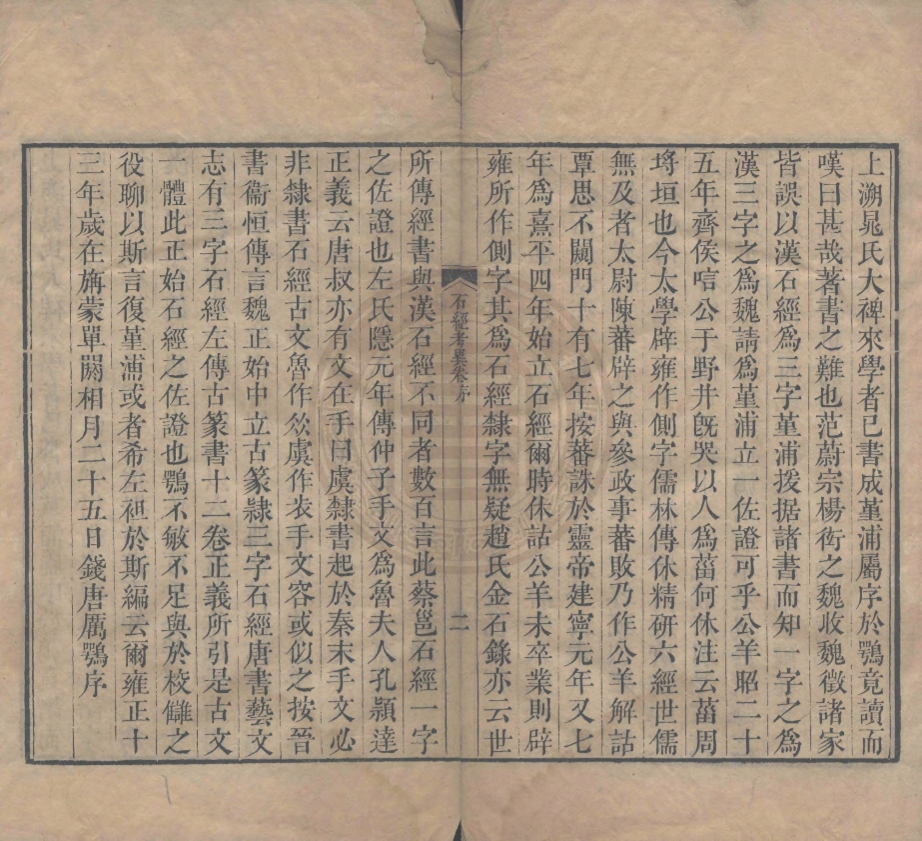 上溯晁氏大裨來學者已書成菫浦屬序於鶚竟讀而
嘆曰甚哉著書之難也范蔚宗楊衒之魏收魏徵諸家
皆誤以漢石經爲三字菫浦援据諸書而知一字之爲
漢三字之爲魏請爲菫浦立一佐證可乎公羊昭二十
五年齊侯唁公于野井旣哭以人爲菑何休注云菑周
埓垣也今太學辟雍作側字儒林傳休精研六經世儒
無及者太尉陳蕃辟之與參政事蕃敗乃作公羊解詁
覃思不闚門十有七年按蕃誅於靈帝建寧元年又七
年爲熹平四年始立石經爾時休詁公羊未卒業則辟
雍所作側字其爲石經隸字無疑趙氏金石錄亦云世
石經考異卷序
二
所傳經書與漢石經不同者數百言此蔡邕石經一字
之佐證也左氏隱元年傳仲子手文爲魯夫人孔頴達
正義云唐叔亦有文在手曰虞隸書起於秦末手文必
非隸書石經古文魯作㒭虞作𠂔手文容或似之按晉
書衞恒傳言魏正始中立古篆隸三字石經唐書藝文
志有三字石經左傳古篆書十二卷正義所引是古文
一體此正始石經之佐證也鶚不敏不足與於校讎之
役聊以斯言復菫浦或者希左袒於斯編云爾雍正十
三年歲在旃蒙單閼相月二十五日錢唐厲鶚序